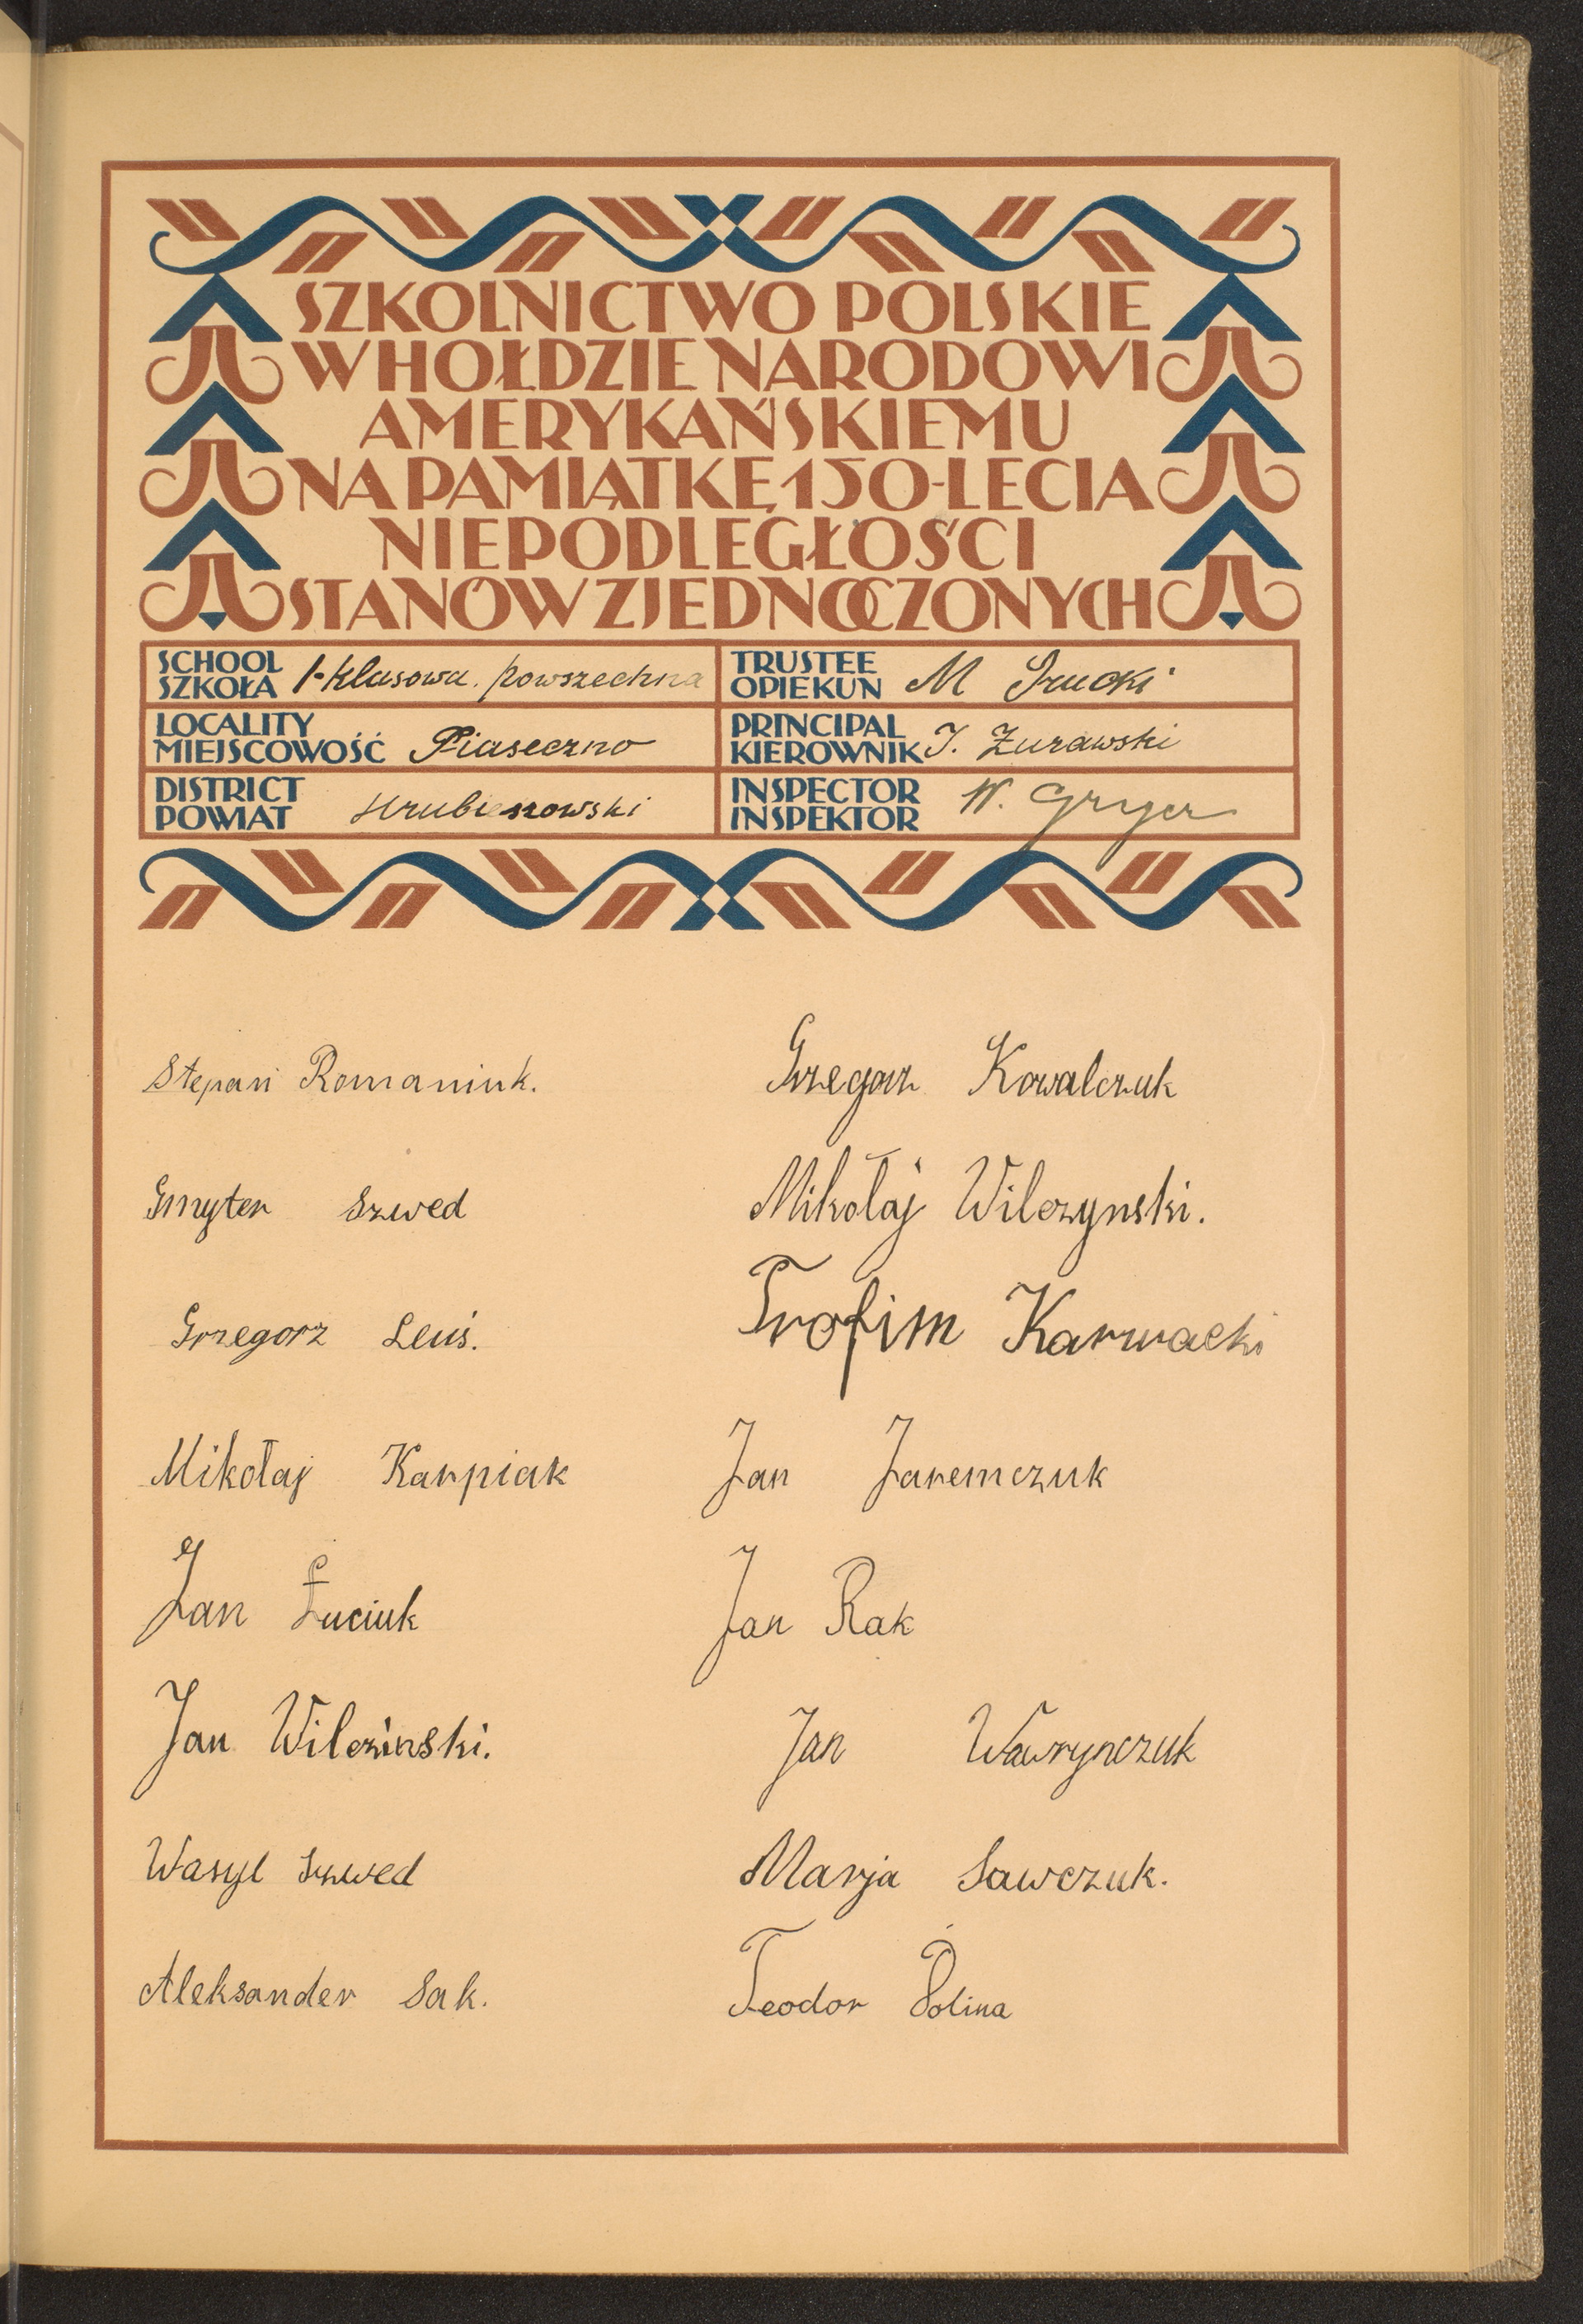 SZKOLNICTWO POLSKIE
W HOŁDZIE NARODOWI
AMERYKAŃSKIEMU
NA PAMIĄTKĘ 150-LECIA
NIEPODLEGŁOŚCI
STANÓW ZJEDNOCZONYCH
SCHOOL
SZKOŁA 1-klasowa. powszechna
TRUSTEE
OPIEKUN M
LOCALITY
MIEJSCOWOŚĆ Piaseczno
PRINCIPAL
KIEROWNIK J. Żurawski
DISTRICT
POWIAT Hrubieszowski
INSPECTOR
INSPEKTOR W.
Stepań Romaniuk.
Grzegorz Kowalczuk
Gmyter Szwed
Mikołaj Wilczynski.
Grzegorz Leuś.
Trofim Karwacki
Mikołaj Karpiak
Jan Jaremczuk
Jan Łuciuk
Jan Rak
Jan Wilcziński.
Jan Wawrynczuk
Wasyl Szwed
Marja Sawczuk.
Aleksander Sak.
Teodor Polina